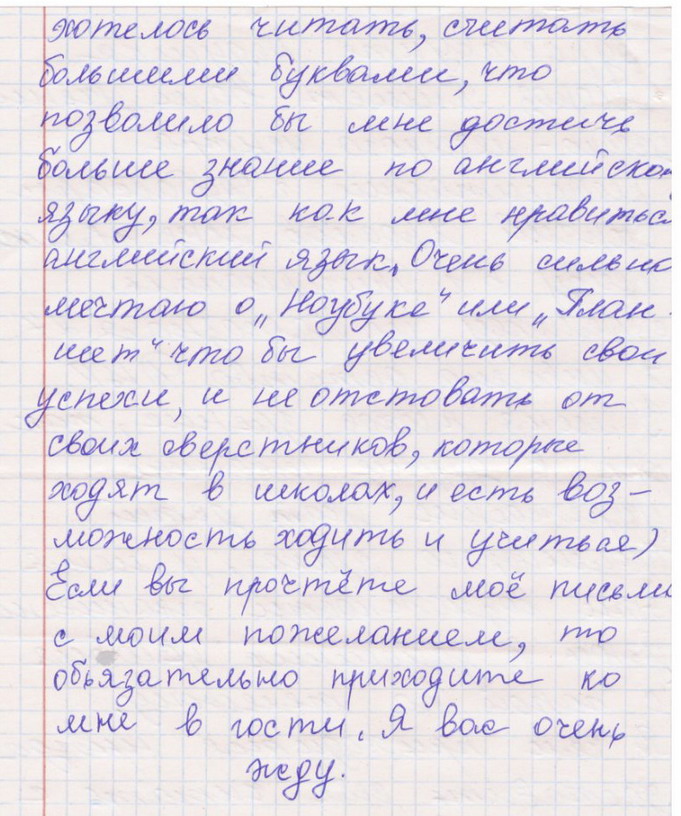 хотелось читать, считать
большими буквами, что
позволило бы мне достичь
больше знание по английском
языку, так как мне нравиться
английский язык. Очень сильно
мечтаю о „Ноубуке“ или „План-
шет“ что бы увеличить свои
успехи, и не отстовать от
своих сверстников, которые
ходят в школах, и есть воз-
можность ходить и учиться)
Если вы прочтёте моё письмо
с моим пожеланием, то
обьязательно приходите ко
мне в гости. Я вас очень
жду.